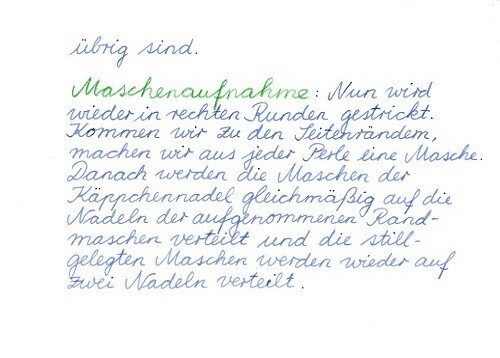 übrig sind.
Maschenaufnahme: Nun wird
wieder in rechten Runden gestrickt.
Kommen wir zu den Seitenrändern,
machen wir aus jeder Perle eine Masche.
Danach werden die Maschen der
Käppchennadel gleichmäßig auf die
Nadeln der aufgenommenen Rand-
maschen verteilt und die still-
gelegten Maschen werden wieder auf
zwei Nadeln verteilt.